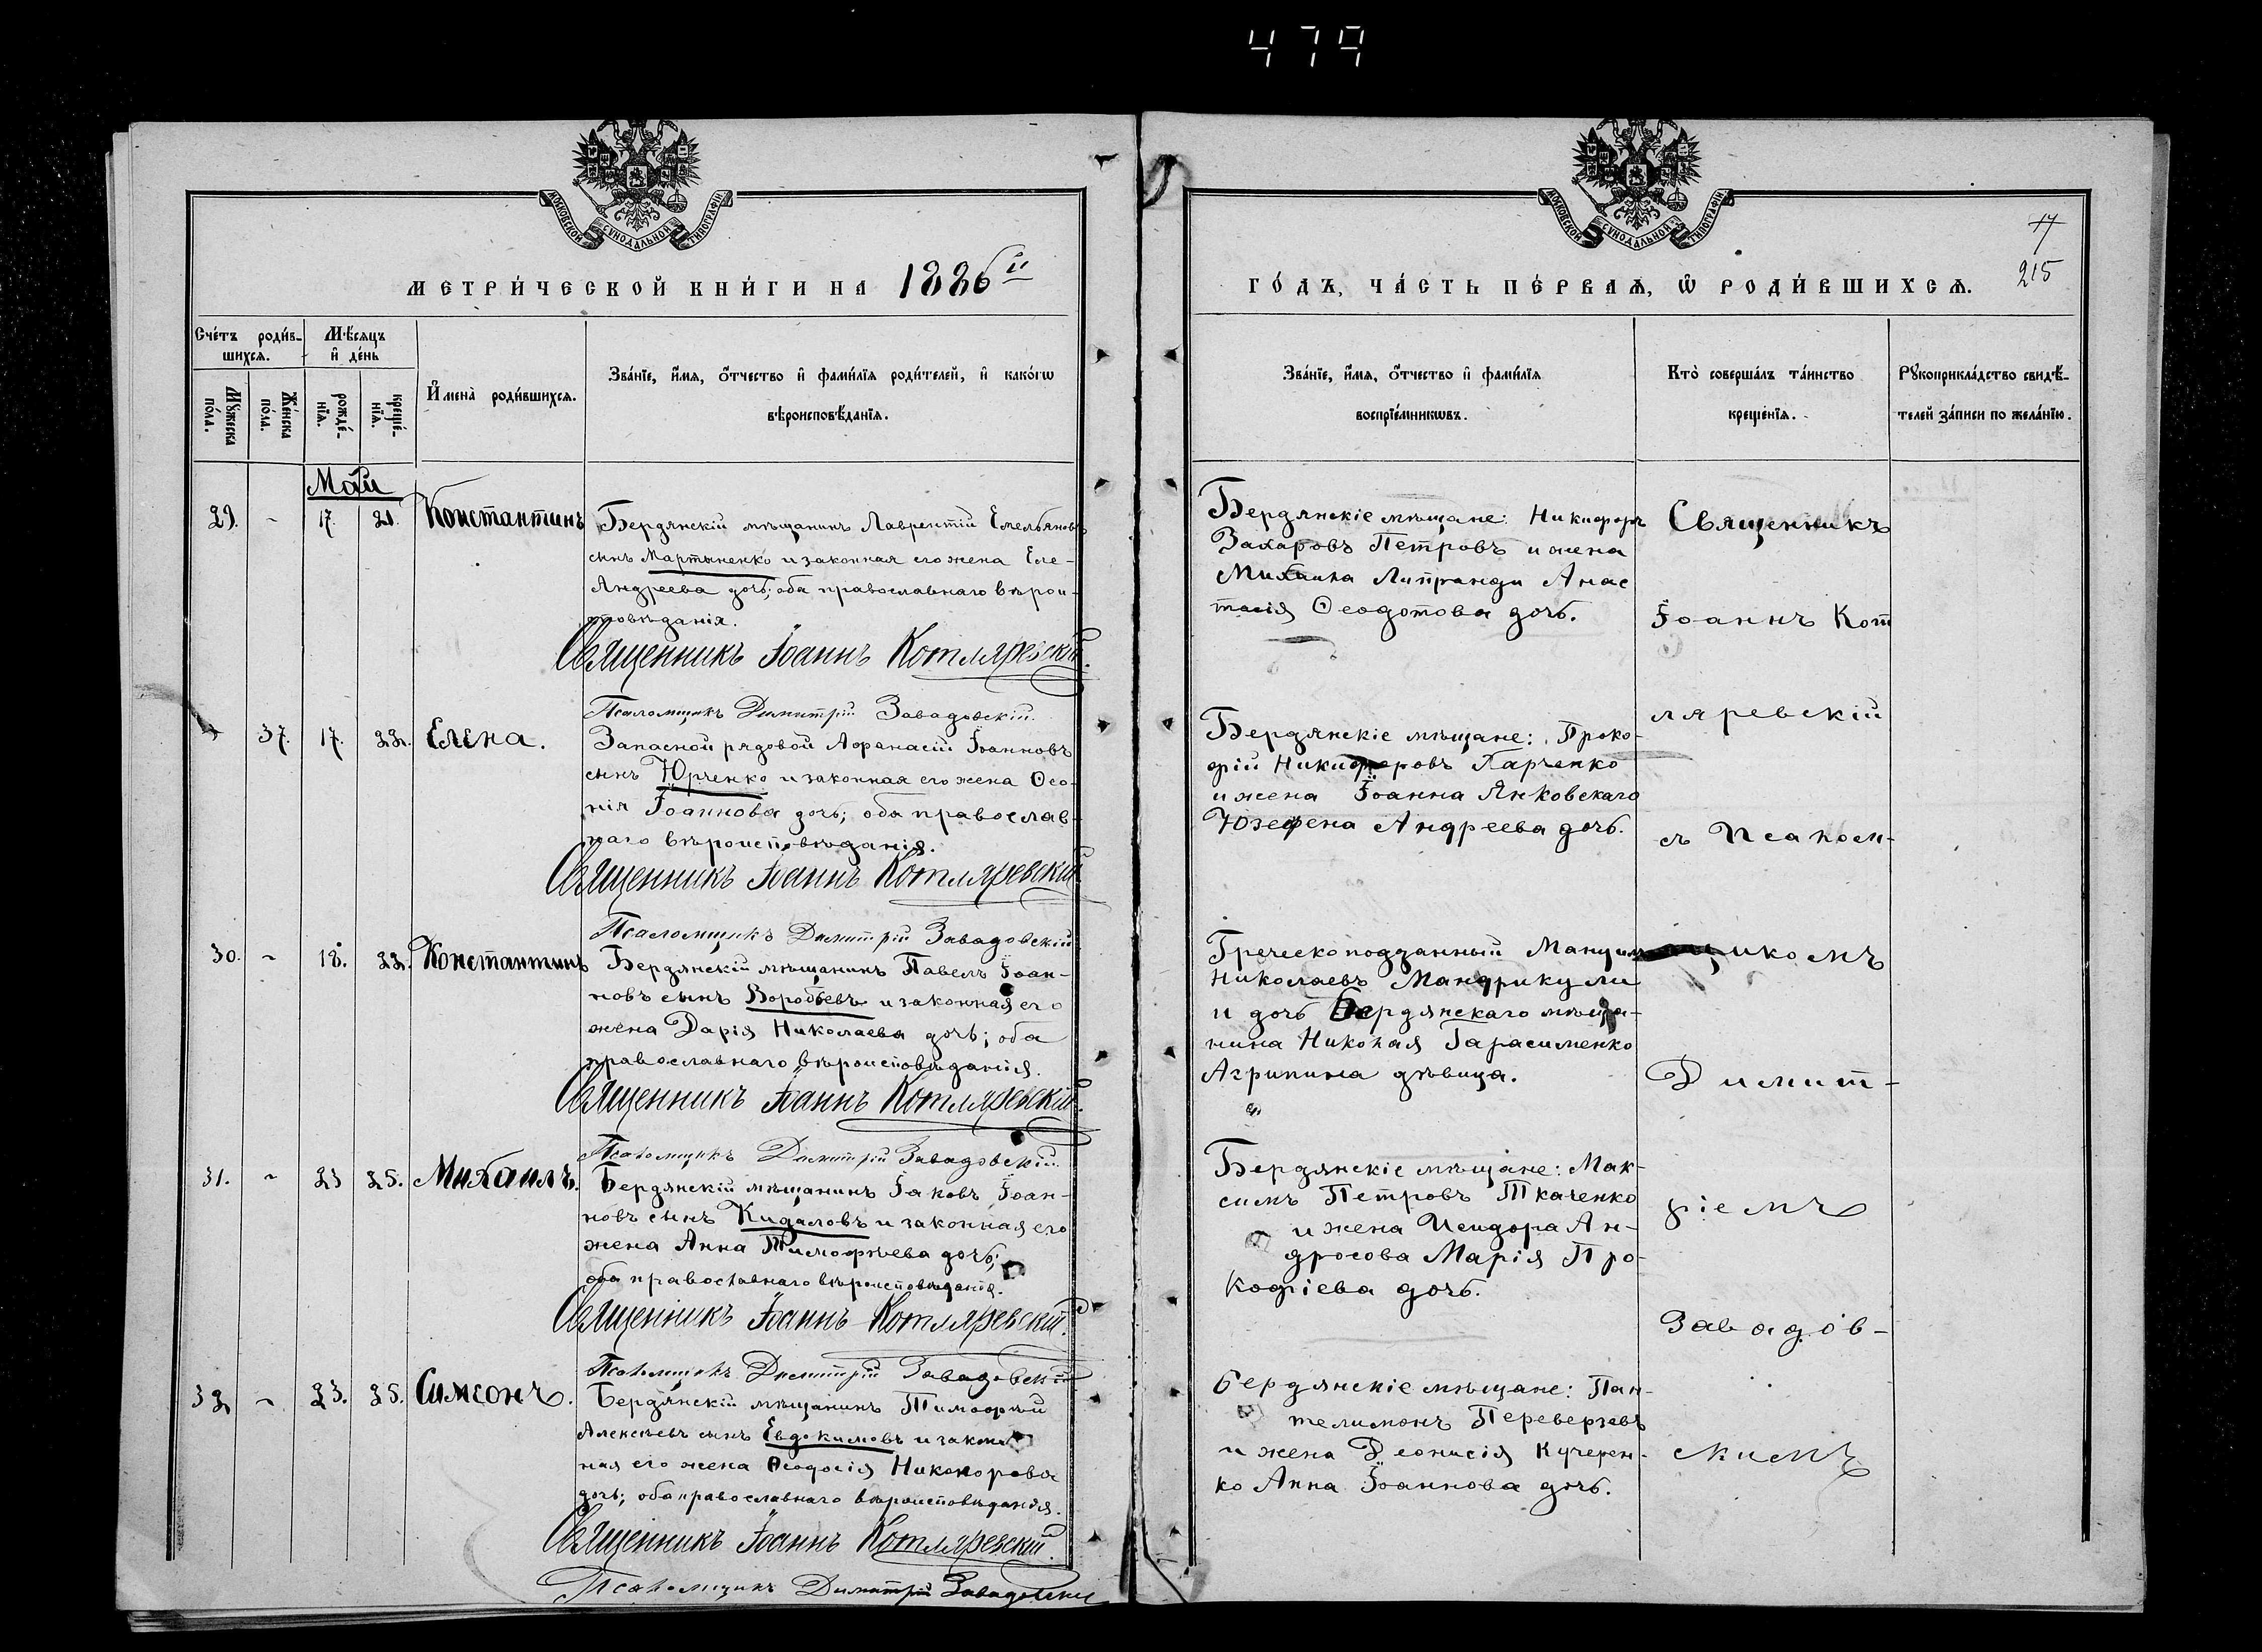 479
МОСКОВСКОЙ СѴНОДАЛЬНОЙ ТИПОГРАФІИ
МЕТРИ́ЧЕСКОЙ КНИ́ГИ НА 1886й
Счéтъ роди́в-
шихсѧ.
Мѣ́сяцъ
и҆ де́нь
Мꙋ́жеска
по́ла.
Же́нска
по́ла.
рожде́-
нїѧ.
креще́-
нїѧ.
И҆мена̀ роди́вшихсѧ.
Зва́нїе, и҆́мѧ, ѻ҆́тчество и҆ фами́лїѧ роди́телей, и҆ како́гѡ
вѣроисповѣ́данїѧ.
Май
29. - 17. 21. Константинъ
Бердянскій мѣщанинъ Лаврентій Емельяновъ
сынъ Мартыненко и законная его жена Еле-
Андреева дочь; оба православнаго вѣрои-
сповѣданія.
Священникъ Іоаннъ Котляревскій.
Псаломщикъ Димитрій Завадовскій.
37. 17. 22. Елена.
Запасной рядовой Аѳанасій Іоанновъ
сынъ Юрченко и законная его жена Ѳео-
нія Іоаннова дочь; оба православ-
наго вѣроисповѣданія.
Священникъ Іоаннъ Котляревскій
Псаломщикъ Димитрій Завадовскій
30. - 18. 22. Константинъ
Бердянскій мѣщанинъ Павелъ Іоан-
новъ сынъ Воробьевъ и законная его
жена Дарія Николаева дочь; оба
православнаго вѣроисповѣданія.
Священникъ Іоаннъ Котляревскій.
Псаломщикъ Димитрій Завадовскій.
31. - 23 25. Михаилъ.
Бердянскій мѣщанинъ Іаковъ Іоан-
новъ сынъ Кидаловъ и законная его
жена Анна Тимофѣева дочь;
оба православнаго вѣроисповѣданія.
Священникъ Іоаннъ Котляревскій.
Псаломщикъ Димитрій Завадовскій
32 - 23. 25. Симеонъ.
Бердянскій мѣщанинъ Тимофѣй
Алексѣевъ сынъ Евдокимовъ и закон
ная его жена Ѳеодосія Никонорова
дочь; оба православнаго вѣроисповѣданія.
Священникъ Іоаннъ Котляревскій.
Псаломщикъ Димитрій Завадовскій
МОСКОВСКОЙ СѴНОДАЛЬНОЙ ТИПОГРАФІИ
17
215
ГО́ДЪ, ЧА́СТЬ ПЕ́РВАѦ, Ѡ҆ РОДИ́ВШИХСѦ.
Зва́нїе, и҆́мѧ, ѻ҆́тчество и҆ фами́лїѧ
воспрїе́мникѡвъ.
Кто̀ соверша́лъ та́инство
креще́нїѧ.
Рꙋкоприкла́дство свидѣ́-
телей за́писи по жела́нїю.
Бердянскіе мѣщане: Никифоръ
Захаровъ Петровъ и жена
Михаила Липранди Анас
тасія Ѳеодотова дочь.
Бердянскіе мѣщане: Проко-
фій Никифоровъ Харченко
и жена Іоанна Янковскаго
Юзефена Андреева дочь.
Греческоподданный
Николаевъ Мандрикули
и дочь Бердянскаго мѣща-
нина Николая Гарасименко
Агрипина дѣвица.
Бердянскіе мѣщане: Мак-
симъ Петровъ Ткаченко
и жена Исидора Ан-
дросова Марія Про-
кофіева дочь.
Бердянскіе мѣщане: Пан-
телимонъ Переверзевъ
и жена Деонисія Кучерен-
ко Анна Іоаннова дочь.
Священникъ
Іоаннъ Кот
ляревскій
съ Псалом-
щикомъ
Димит-
ріемъ
Завадов-
скимъ